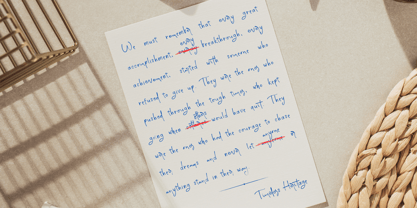 We must remember that every great
accomplishment, every breakthrough, every
achievement, started with someone who
refused to give up. They were the ones who
pushed through the tough times, who kept
going when others would have quit. They
were the ones who had the courage to chase
their dreams and never let anyone or
anything stand in their way.
Tuesday Heritage